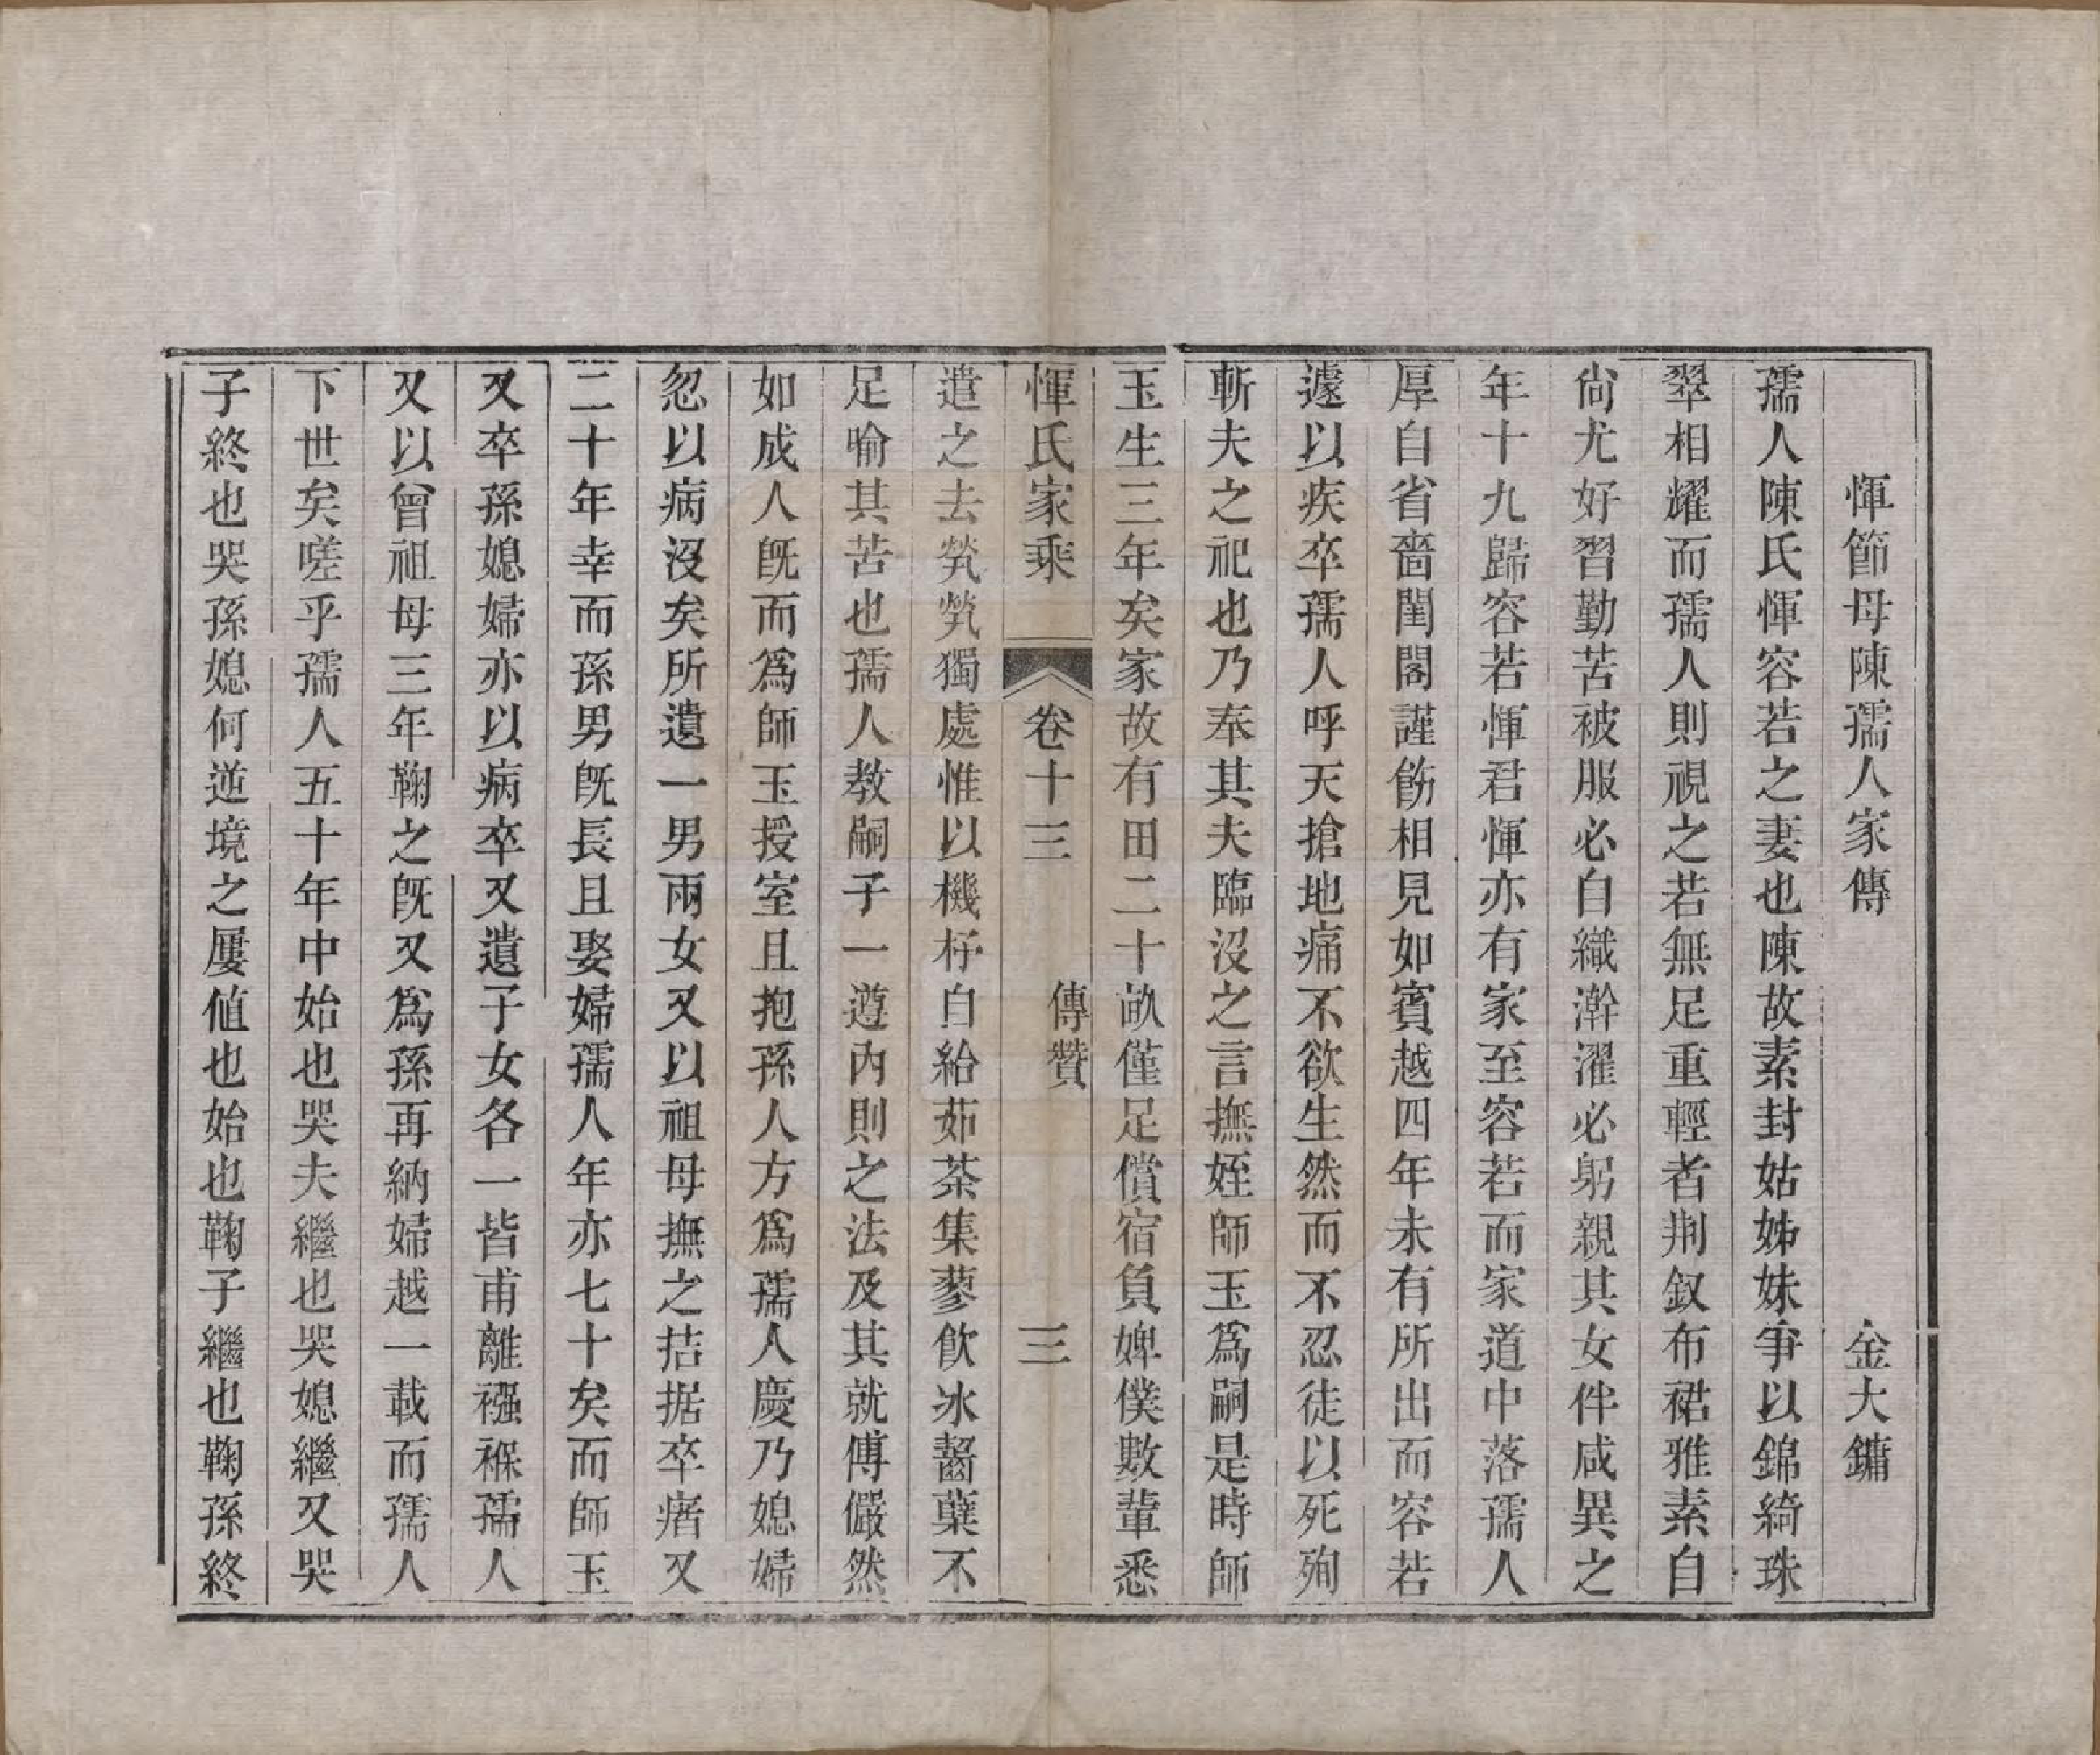 惲節母陳孺人家傳　金大鏞
孺人陳氏惲容若之妻也陳故素封姑姊妹爭以錦綺珠
翠相耀而孺人則視之若無足重輕者荆釵布裙雅素自
尙尤好習勤苦被服必自織澣濯必躬親其女伴咸異之
年十九歸容若惲君惲亦有家至容若而家道中落孺人
厚自省嗇閨閣謹飭相見如賓越四年未有所出而容若
遽以疾卒孺人呼天搶地痛不欲生然而不忍徒以死殉
斬夫之祀也乃奉其夫臨沒之言撫姪師玉爲嗣是時師
玉生三年矣家故有田二十畝僅足償宿負婢僕數輩悉
惲氏家乘　卷十三　傳贊　三
遣之去煢煢獨處惟以機杼自給茹荼集蓼飮冰齧蘗不
足喻其苦也孺人教嗣子一遵內則之法及其就傅儼然
如成人旣而爲師玉授室且抱孫人方爲孺人慶乃媳婦
忽以病沒矣所遺一男兩女又以祖母撫之拮据卒瘏又
二十年幸而孫男旣長且娶婦孺人年亦七十矣而師玉
又卒孫媳婦亦以病卒又遺子女各一皆甫離襁褓孺人
又以曾祖母三年鞠之旣又爲孫再納婦越一載而孺人
下世矣嗟乎孺人五十年中始也哭夫繼也哭媳繼又哭
子終也哭孫媳何逆境之屢値也始也鞠子繼也鞠孫終